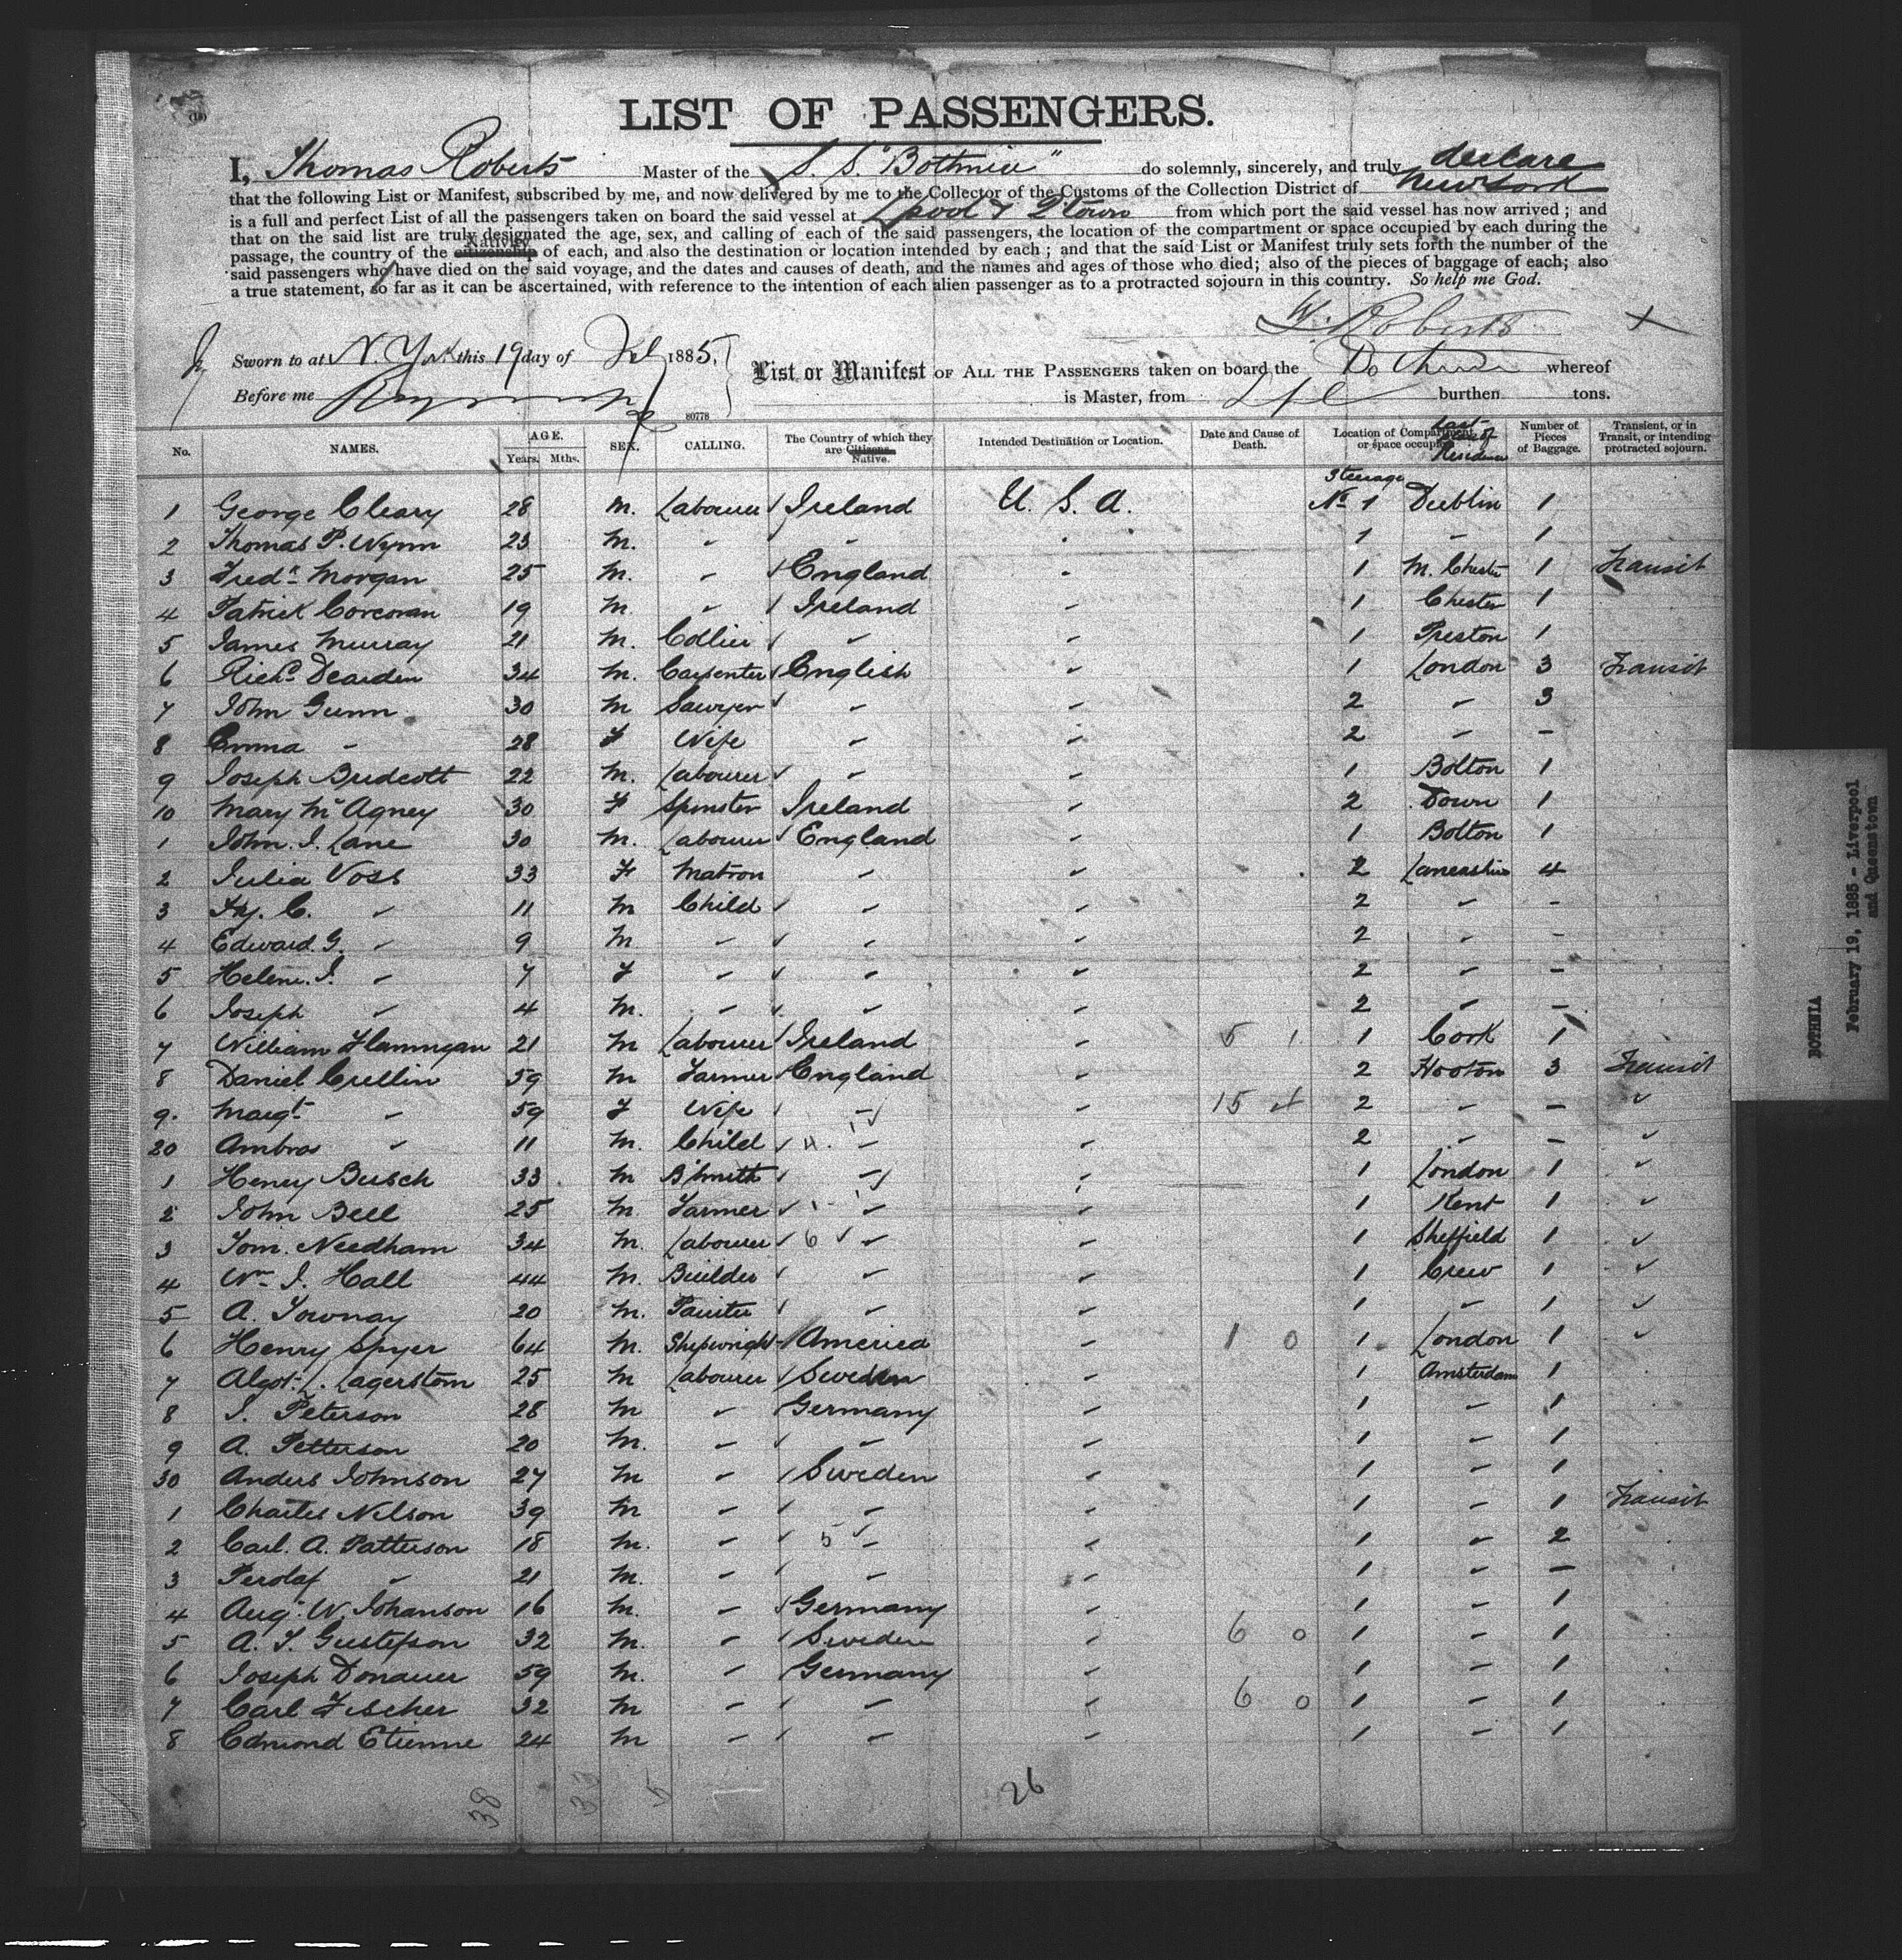 LIST OF PASSENGERS.
I, Thomas Roberts Master of the S. S. "Bothnia" do solemnly, sincerely, and truly declare
that the following List or Manifest, subscribed by me, and now delivered by me to the Collector of the Customs of the Collection District of New York
is a full and perfect List of all the passengers taken on board the said vessel at L'pool & Q'town from which port the said vessel has now arrived; and
that on the said list are truly designated the age, sex, and calling of each of the said passengers, the location of the compartment or space occupied by each during the
Nativity
passage, the country of the citizenship of each, and also the destination or location intended by each; and that the said List or Manifest truly sets forth the number of the
said passengers who have died on the said voyage, and the dates and causes of death, and the names and ages of those who died; also of the pieces of baggage of each; also
a true statement, so far as it can be ascertained, with reference to the intention of each alien passenger as to a protracted sojourn in this country. So help me God.
Roberts
Sworn to at N. York this 19 day of Feb 1885,
List or Manifest OF ALL THE PASSENGERS taken on board the Bothnia whereof
Before me
is Master, from Lpl burthen tons.
80778
No. NAMES. AGE. Years. Mths. SEX. CALLING. The Country of which they are Citizens. Native. Intended Destination or Location. Date and Cause of Death. Location of Compartment or space occupied. Last Place of Residence Number of Pieces of Baggage. Transient, or in Transit, or intending protracted sojourn.
Steerage
1 George Cleary 28 M. Labourer Ireland U. S. A. No 1 Dublin 1
2 Thomas P. Wynn 23 M. " " " 1 " 1
3 Fredk Morgan 25 M. " England " 1 M. Chester 1 Transit
4 Patrick Corcoran 19 M. " Ireland " 1 Chester 1
5 James Murray 21 M. Collier " " 1 Preston 1
6 Richd Dearden 34 M. Carpenter English " 1 London 3 Transit
7 John Gunn 30 M Sawyer " " 2 " 3
8 Emma " 28 F Wife " " 2 " -
9 Joseph Budcott 22 M. Labourer " " 1 Bolton 1
10 Mary McAgney 30 F Spinster Ireland " 2 Down 1
1 John. J. Lane 30 M. Labourer England " 1 Bolton 1
2 Julia Voss 33 F Matron " " 2 Lancashire 4
3 Hy. C. " 11 M Child " " 2 " -
4 Edward G. " 9 M " " " 2 " -
5 Helene. J. " 7 F " " " 2 " -
6 Joseph " 4 M. " " " 2 " -
7 William Flannigan 21 M Labourer Ireland " 5 1 1 Cork 1
8 Daniel Crellin 59 M Farmer England " 2 Hooton 3 Transit
9. Margt " 59 F Wife " " 15 4 2 " - "
20 Ambros " 11 M. Child " " 2 " - "
1 Henry Busch 33 M B'smith " " 1 London 1 "
2 John Bell 25 M. Farmer " " 1 Kent 1 "
3 Tom. Needham 34 M. Labourer 6 " " 1 Sheffield 1 "
4 Wm J. Hall 44 M. Builder " " 1 Crew 1 "
5 A. Townay 20 M. Painter " " 1 " 1 "
6 Henry Spyer 64 M. Shipwright America " 1 0 1 London 1 "
7 Algot L. Lagerstom 25 M Labourer Sweden " 1 Amsterdam 1
8 J. Peterson 28 M " Germany " 1 " 1
9 A. Petterson 20 M. " " " 1 " 1
30 Anders Johnson 27 M " Sweden " 1 " 1
1 Charles Nilson 39 M " " " 1 " 1 Transit
2 Carl. A. Patterson 18 M. " 5 " " 1 " 2
3 Perolaf " 21 M. " " " 1 " -
4 Augt. W. Johanson 16 M. " Germany " 1 " 1
5 A. T. Gustefson 32 M. " Sweden " 6 0 1 " 1
6 Joseph Donauer 59 M. " Germany " 1 " 1
7 Carl Fischer 32 M " " " 6 0 1 " 1
8 Edmond Etienne 24 M " " " 1 " 1
38 33 5 26
BOTHNIA
February 19, 1885 - Liverpool
and Queenstown